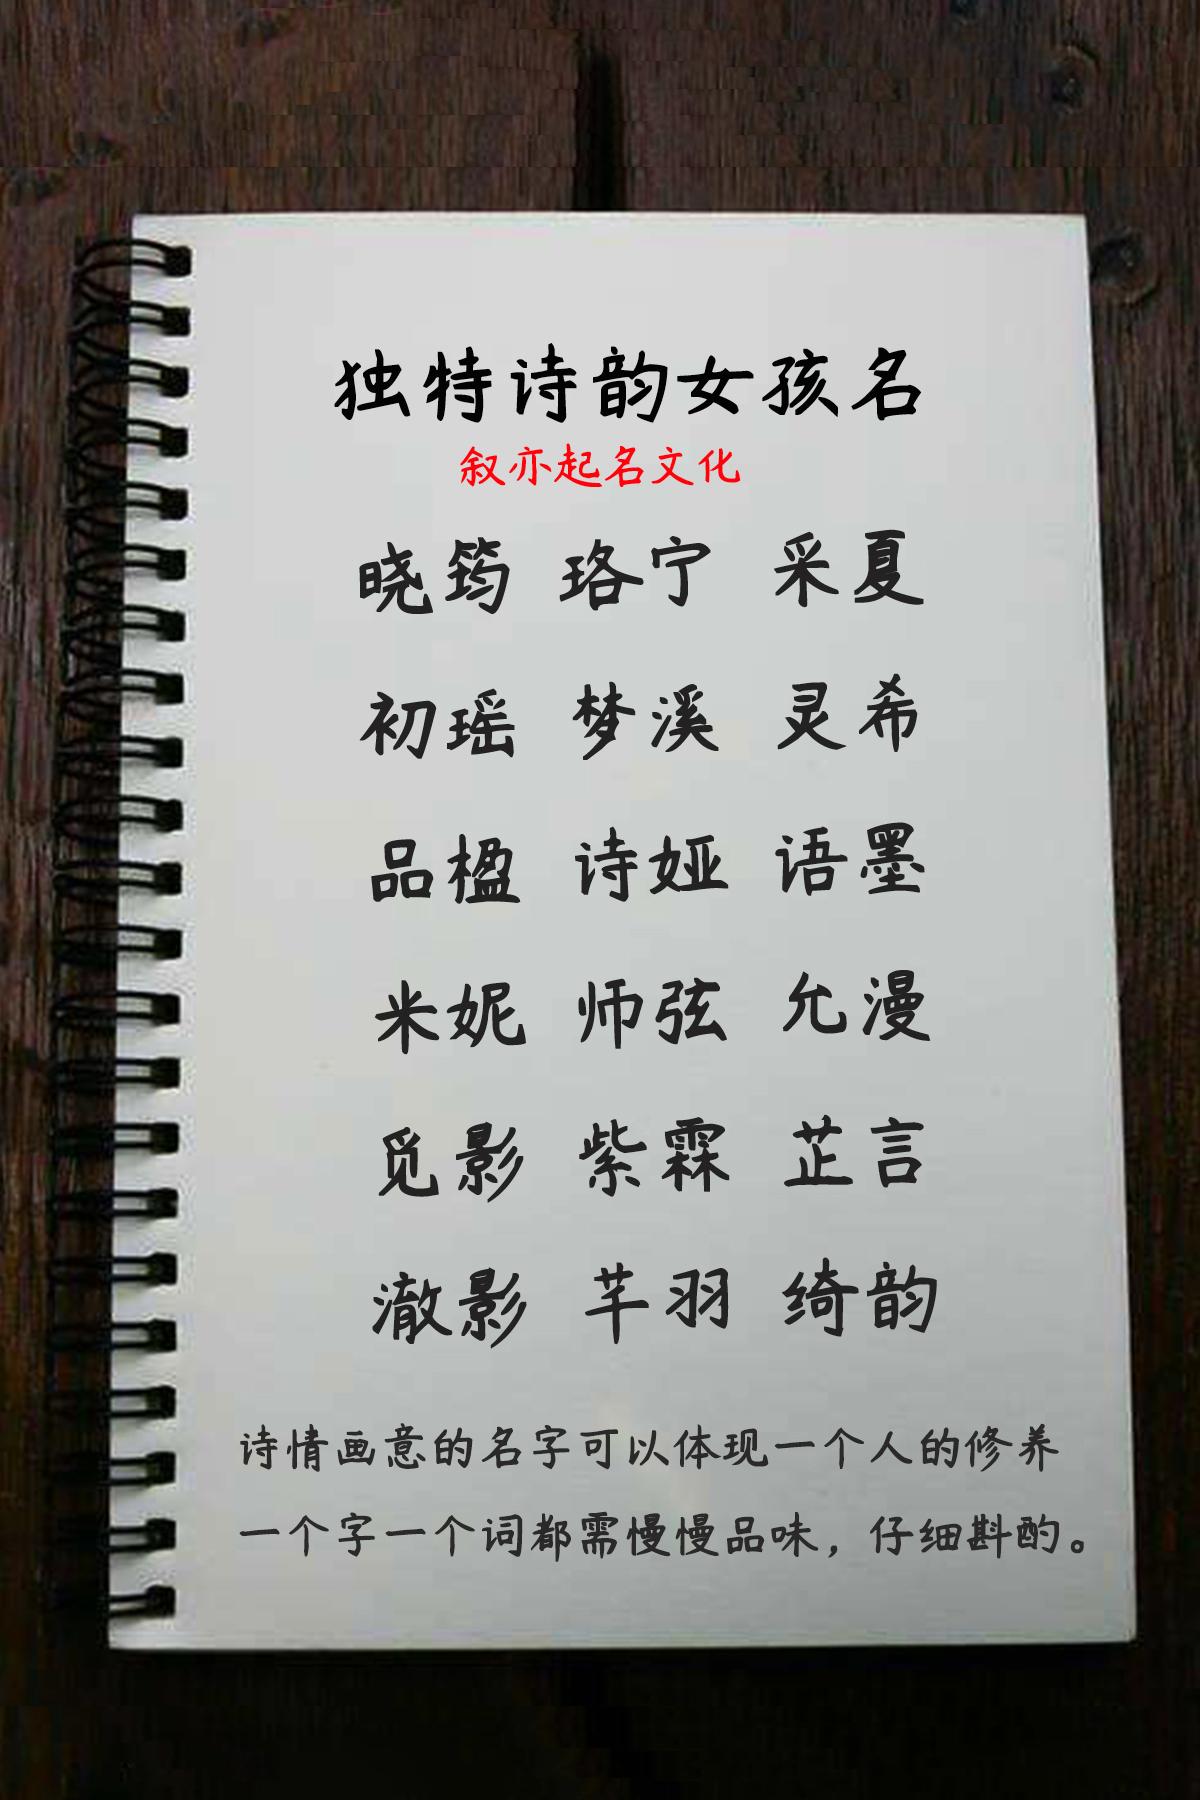 独特诗韵女孩名
叙亦起名文化
晓筠 珞宁 采夏
初瑶 梦溪 灵希
品楹 诗娅 语墨
米妮 师弦 允漫
觅影 紫霖 芷言
澈影 芊羽 绮韵
诗情画意的名字可以体现一个人的修养
一个字一个词都需慢慢品味，仔细斟酌。